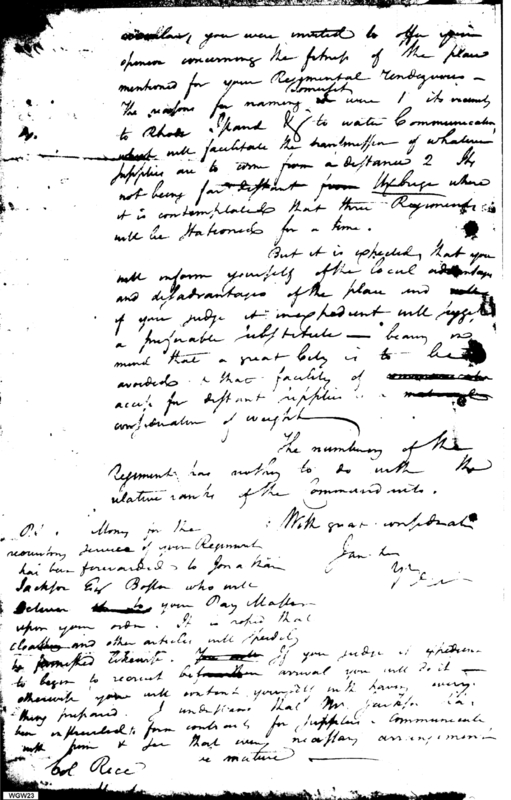 circular, you were invited to offer your
opinion concerning the fitness of the place
mentioned for your Regimental rendezvous —
Somerset
The reasons for naming it were 1 its vicinity
to Rhode Island & to water Communication
which will facilitate the transmission of whatever
supplies are to come from a distance 2 Its
not being far distant from Uxbridge where
it is contemplated that three Regiments
will be stationed for a time.
But it is expected that you
will inform yourself of the local advantages
and disadvantages of the place and
if you judge it inexpedient will suggest
a preferable substitute — bearing in
mind that a great City is to be
avoided & that facility of
access for distant supplies is a
consideration of weight
The numbering of the
Regiments has nothing to do with the
relative ranks of the Commandants.
With great consideration
I am &
P.S. Money for the
recruiting service of your Regiment
has been forwarded to Jonathan
Jackson Esq Boston who will
deliver to your Pay Master
upon your order. It is hoped that
cloathing and other articles will speedily
be furnished likewise. If you judge it expedient
to begin to recruit before arrival you will do it —
otherwise you will content yourself with having every
thing prepared. I understand that Mr. Jackson has
been instructed to form contracts for supplies. Communicate
with him & see that every necessary arrangement
is mature
Col Rice
WGW23